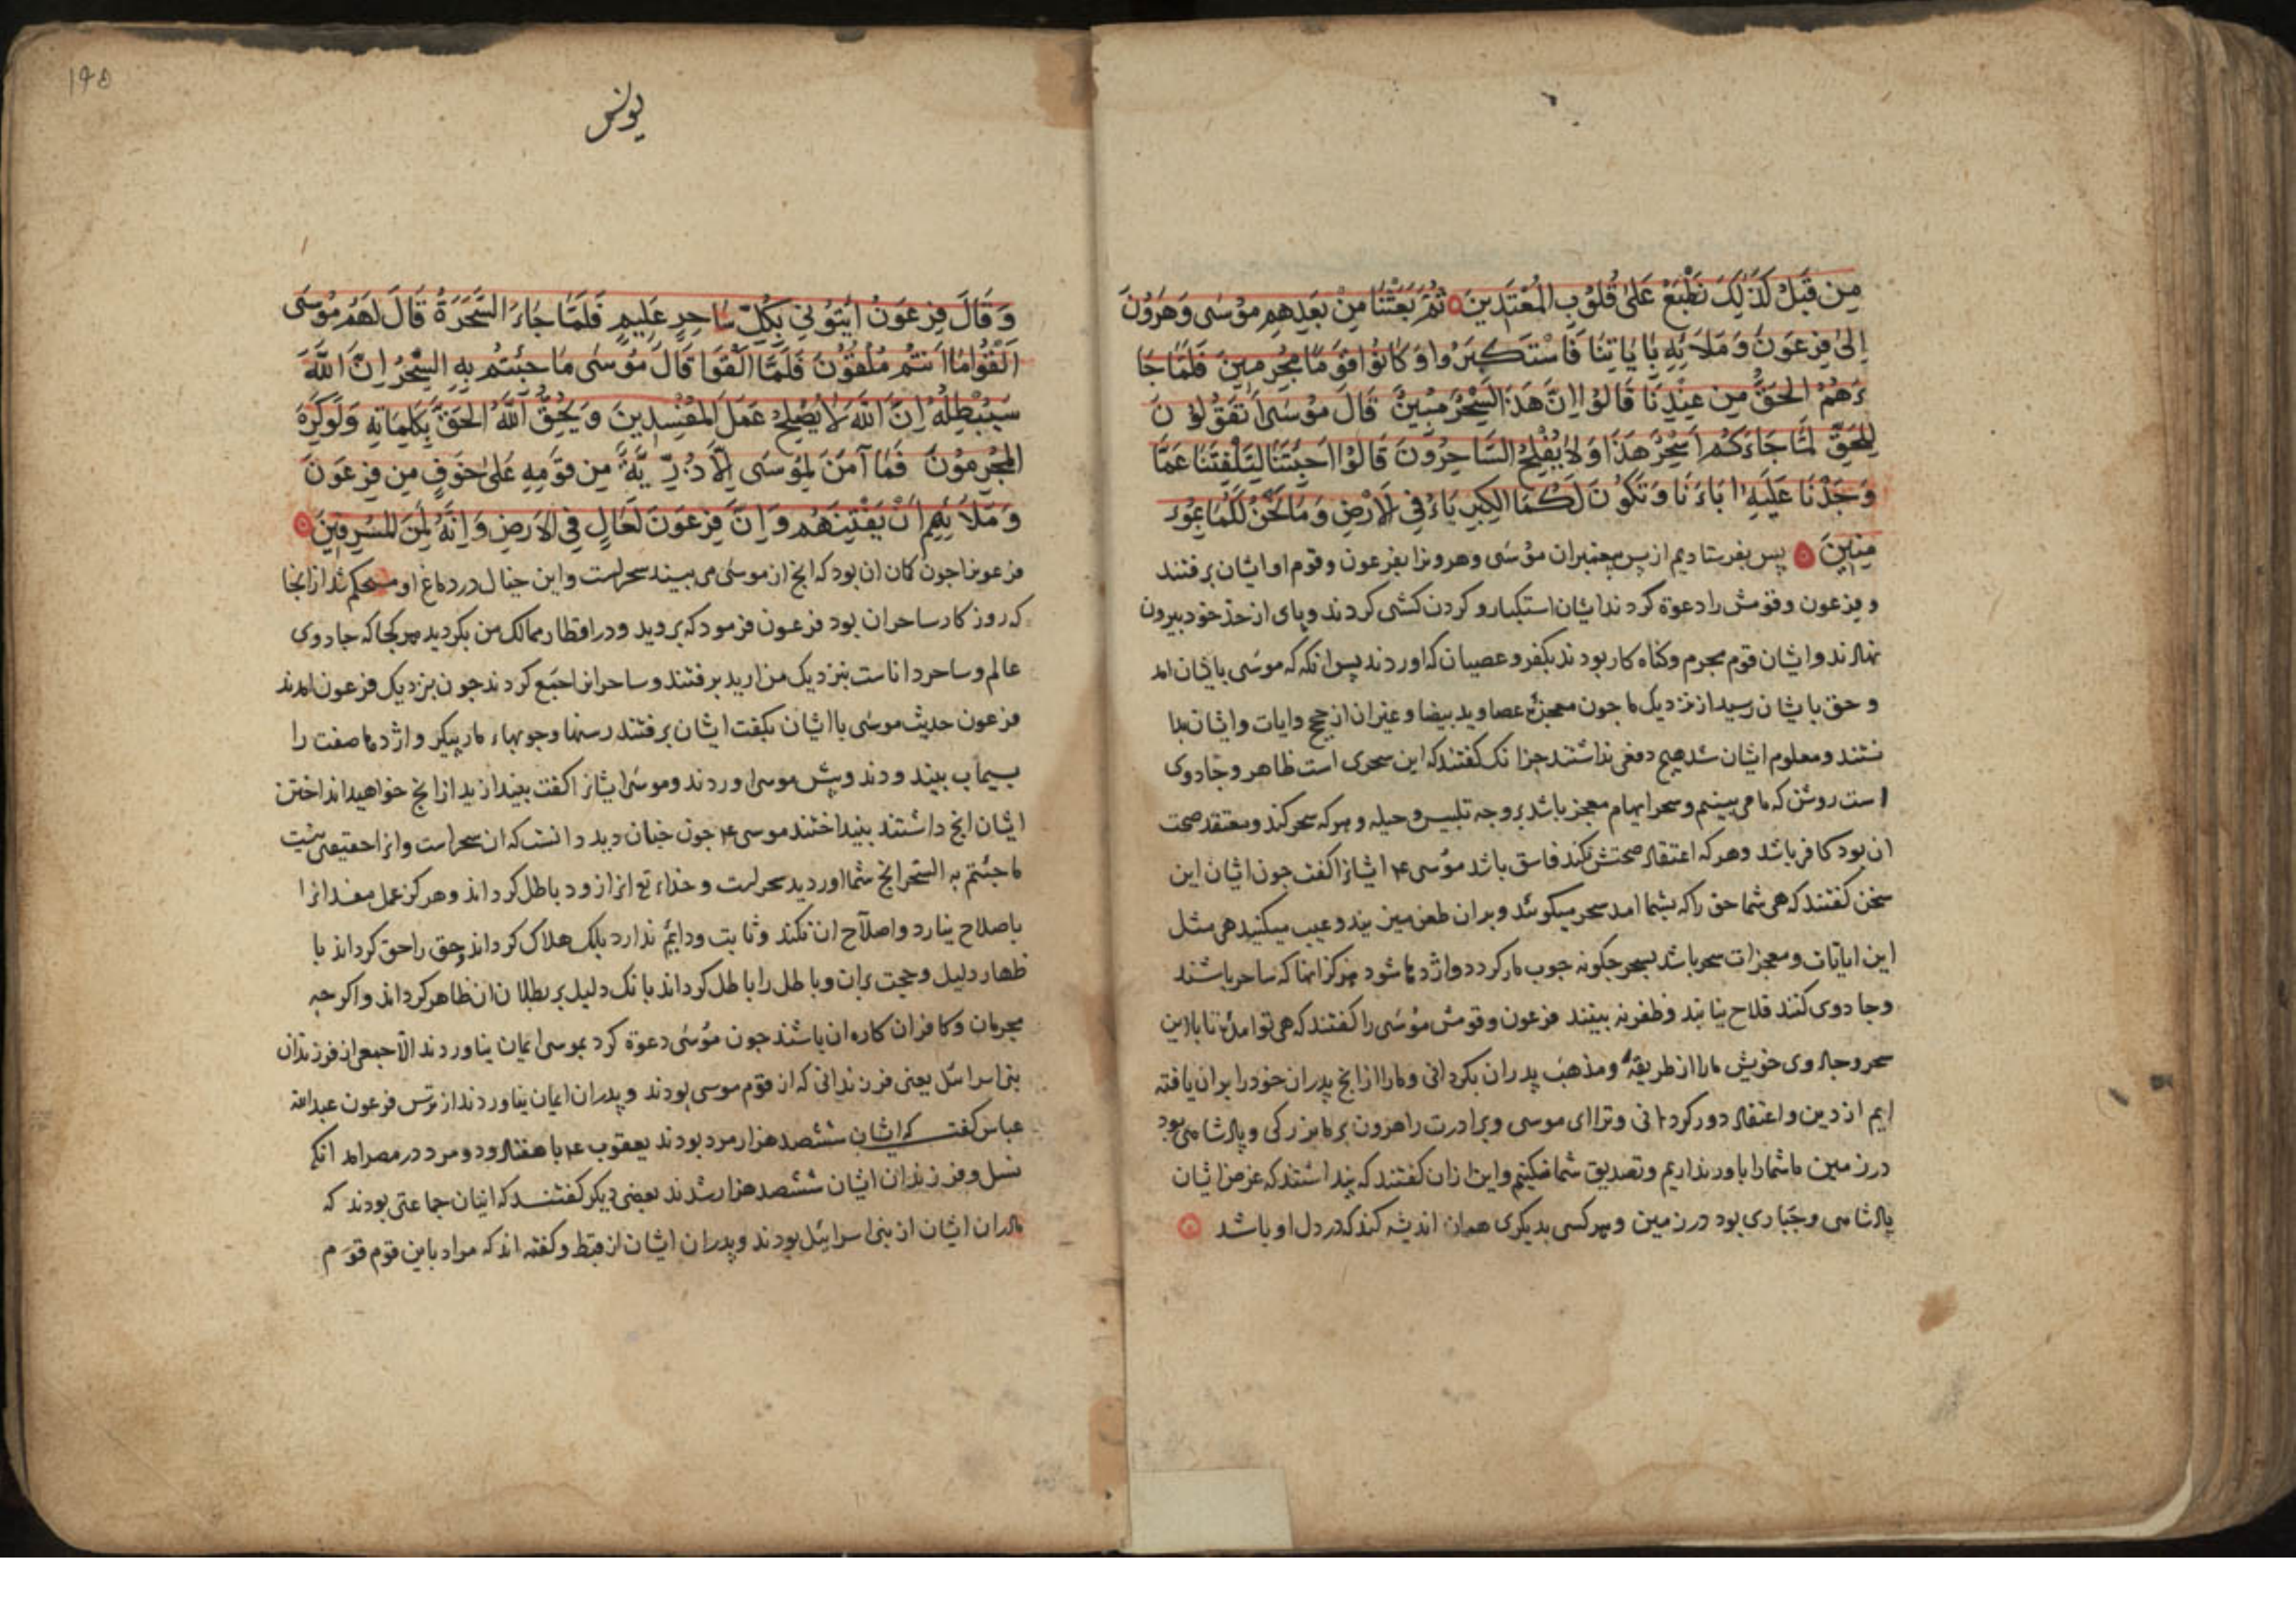 مِن قَبْلُ كَذَٰلِكَ نَطْبَعُ عَلىٰ قُلُوبِ المُعْتَدِينَ ثُمَّ بَعَثْنَا مِنْ بَعْدِهِم مُوسَى وَهَرُونَ
اِلىٰ فِرْعَوْنَ وَ مَلَائِهِ بِاٰيَاتِنَا فَاسْتَكبَرُوا وَ كَانُوْا قَوْمًا مُجْرِمِينَ فَلَمَّا جَا
ءَهُمْ الحَقُّ مِن عِنْدِنَا قَالُوْا اِنَّ هَذَا لَسِحْرٌ مُبِينٌ قَالَ مُوْسَى اَتَقُولُوْ نَ
لِلْحَقِّ لَمَّا جَاءَكُمْ اَسِحْرٌ هَذَا وَ لَا يُفْلِحُ السَّاحِرُونَ قَالُوْا اَجِئْتَنَا لِتَلْفِتَنَا عَمَّا
وَجَدْنَا عَلَيْهِ اٰبَاءَنَا وَ تَكُوْنَ لَكُمَا الكِبْرِيَاءُ فِي الْاَرْضِ وَ مَا نَحْنُ لَكُمَا بِمُؤْ
مِنِينَ پس بفرستاديم از پس پيغنبران مؤسَى وهرونرا بفرعون وقوم او ايشان برفتند
و فرعون وقومش را دعوة كردند ايشان استكبار و كردن كشى كردند و پاى از حدّ خود بيرون
نهادند و ايشان قوم مجرم وكناه كار بودند بكفر وعصيان كه اوردند پس انكه كه موسَى بايشان امد
و حق بايشان رسيد از نزديك ما جون معجزۀ عصا ويد بيضا و غير ان از حجج وايات و ايشان بدا
نستند و معلوم ايشان شد هيچ دفعى نداشتند جز انك كفتند كه اين سحرى است ظاهر وجادوى
است روشن كه ما مى بينيم و سحر ايهام معجز باشد بر وجه تلبيس و حيله و هر كه سحر كند و معتقد صحت
ان بود كافر باشد وهر كه اعتقاد صحتش نكند فاسق باشد مؤسى ۴ ايشانرا كفت جون ايشان اين
سخن كفتند كه هى شما حق را كه بشما امد سحر ميكوئد و بران طعن ميزنيد و عيب ميكنيد هى مثل
اين اياتات و معجزات سحر باشد بسحر جكونه جوب مار كردد و اژدها شود هركز انها كه ساحر باشند
وجادوى كنند فلاح نيابند و ظفر نه بينند فرعون و قومش مؤسَى را كفتند كه هى تو امدۀ تا با اين
سحر و جادوى خويش ما را از طريقۀ و مذهب پدران بكردانى و ما را از انچ پدران خود را بران يافته
ايم از دين و اعتقاد دور كردانى و ترا اى موسى و برادرت را هرون بر ما بزركى و پادشاهى بود
در زمين ما شما را باور نداريم و تصديق شما نميكنيم و اين از ان كفتند كه پنداشتند كه غرض ايشان
پادشاهى وجبّارى بود در زمين و هر كسى بديكرى همان انديشه كند كه در دل او باشد
يونس
۱۹۵
وَ قَالَ فِرْعَوْنُ ائْتُوْنِي بِكُلِّ سَاحِرٍ عَلِيمٍ فَلَمَّا جَاءَ السَّحَرَةُ قَالَ لَهُمْ مُوْسَى
اَلْقُوْا مَا اَنتُم مُلْقُوْنَ فَلَمَّا اَلْقَوَا قَالَ مُوْسٰى مَا جِئْتُم بِهِ السِّحْرُ اِنَّ اللّٰهَ
سَيُبْطِلُهُ اِنَّ اللّٰهَ لَا يُصْلِحُ عَمَلَ المُفْسِدِينَ وَ يُحِقُّ اللّٰهُ الحَقَّ بِكَلِمَاتِهِ وَ لَوكَرِهَ
المُجْرِمُوْنَ فَمَا آمَنَ لِمُوْسَى اِلَّا ذُرِّيَّةٌ مِن قَوْمِهِ عَلىٰ خَوْفٍ مِن فِرْعَوْنَ
وَ مَلَائِهِم اَنْ يَفْتِنَهُم وَ اِنَّ فِرْعَوْنَ لَعَالٍ فِي الاَرْضِ وَ اِنَّهُ لَمِنَ المُسْرِفِينَ
فرعونرا جون كمان ان بود كه انچ از موسٰى مى بيند سحر است و اين خيال در دماغ او مستحكم شد از انجا
كه روز كار ساحران بود فرعون فرمود كه برويد و در اقطار ممالك من بكرديد هر كجا كه جادوى
عالم و ساحر داناست بنزديك من اريد برفتند و ساحرانرا جمع كردند جون بنزديك فرعون امدند
فرعون حديث موسى با ايشان بكفت ايشان برفتند رسنها و جوبهاء مار پيكر و اژدها صفت را
بسيماب بيندودند و پيش موسى اوردند و موسى ايشانرا كفت بيندازيد از انچ خواهيد انداختن
ايشان انچ داشتند بينداختند موسى ۴ جون جنان ديد دانست كه ان سحر است و انرا حقيقتى نيست
ما جئتم به السّحر انچ شما اورديد سحر است و خداء تع انرا زود باطل كرداند و هركز عمل مفسدانرا
باصلاح نيارد و اصلاح ان نكند و ثابت و دايم ندارد بلك هلاك كرداند و حق را حق كرداند با
ظهار دليل و حجت بران و باطل را باطل كرداند بانك دليل بر بطلان ان ظاهر كرداند و اكر جه
مجرمان و كافران كاره ان باشند جون مؤسَى دعوة كرد بموسى ايمان نياوردند الّا جمعى از فرزندان
بنى اسرائيل يعنى فرزندانى كه از قوم موسى بودند و پدران ايمان نياوردند از ترس فرعون عبداللّه
عباس كفت كه ايشان ششصد هزار مرد بودند يعقوب ۴ با هفتاد و دو مرد در مصر امد انكه
نسل و فرزندان ايشان ششصد هزار شدند بعضى ديكر كفتند كه اينان جماعتى بودند كه
مادران ايشان از بنى اسرائيل بودند و پدران ايشان از قبط و كفته اند كه مراد باين قوم قوم